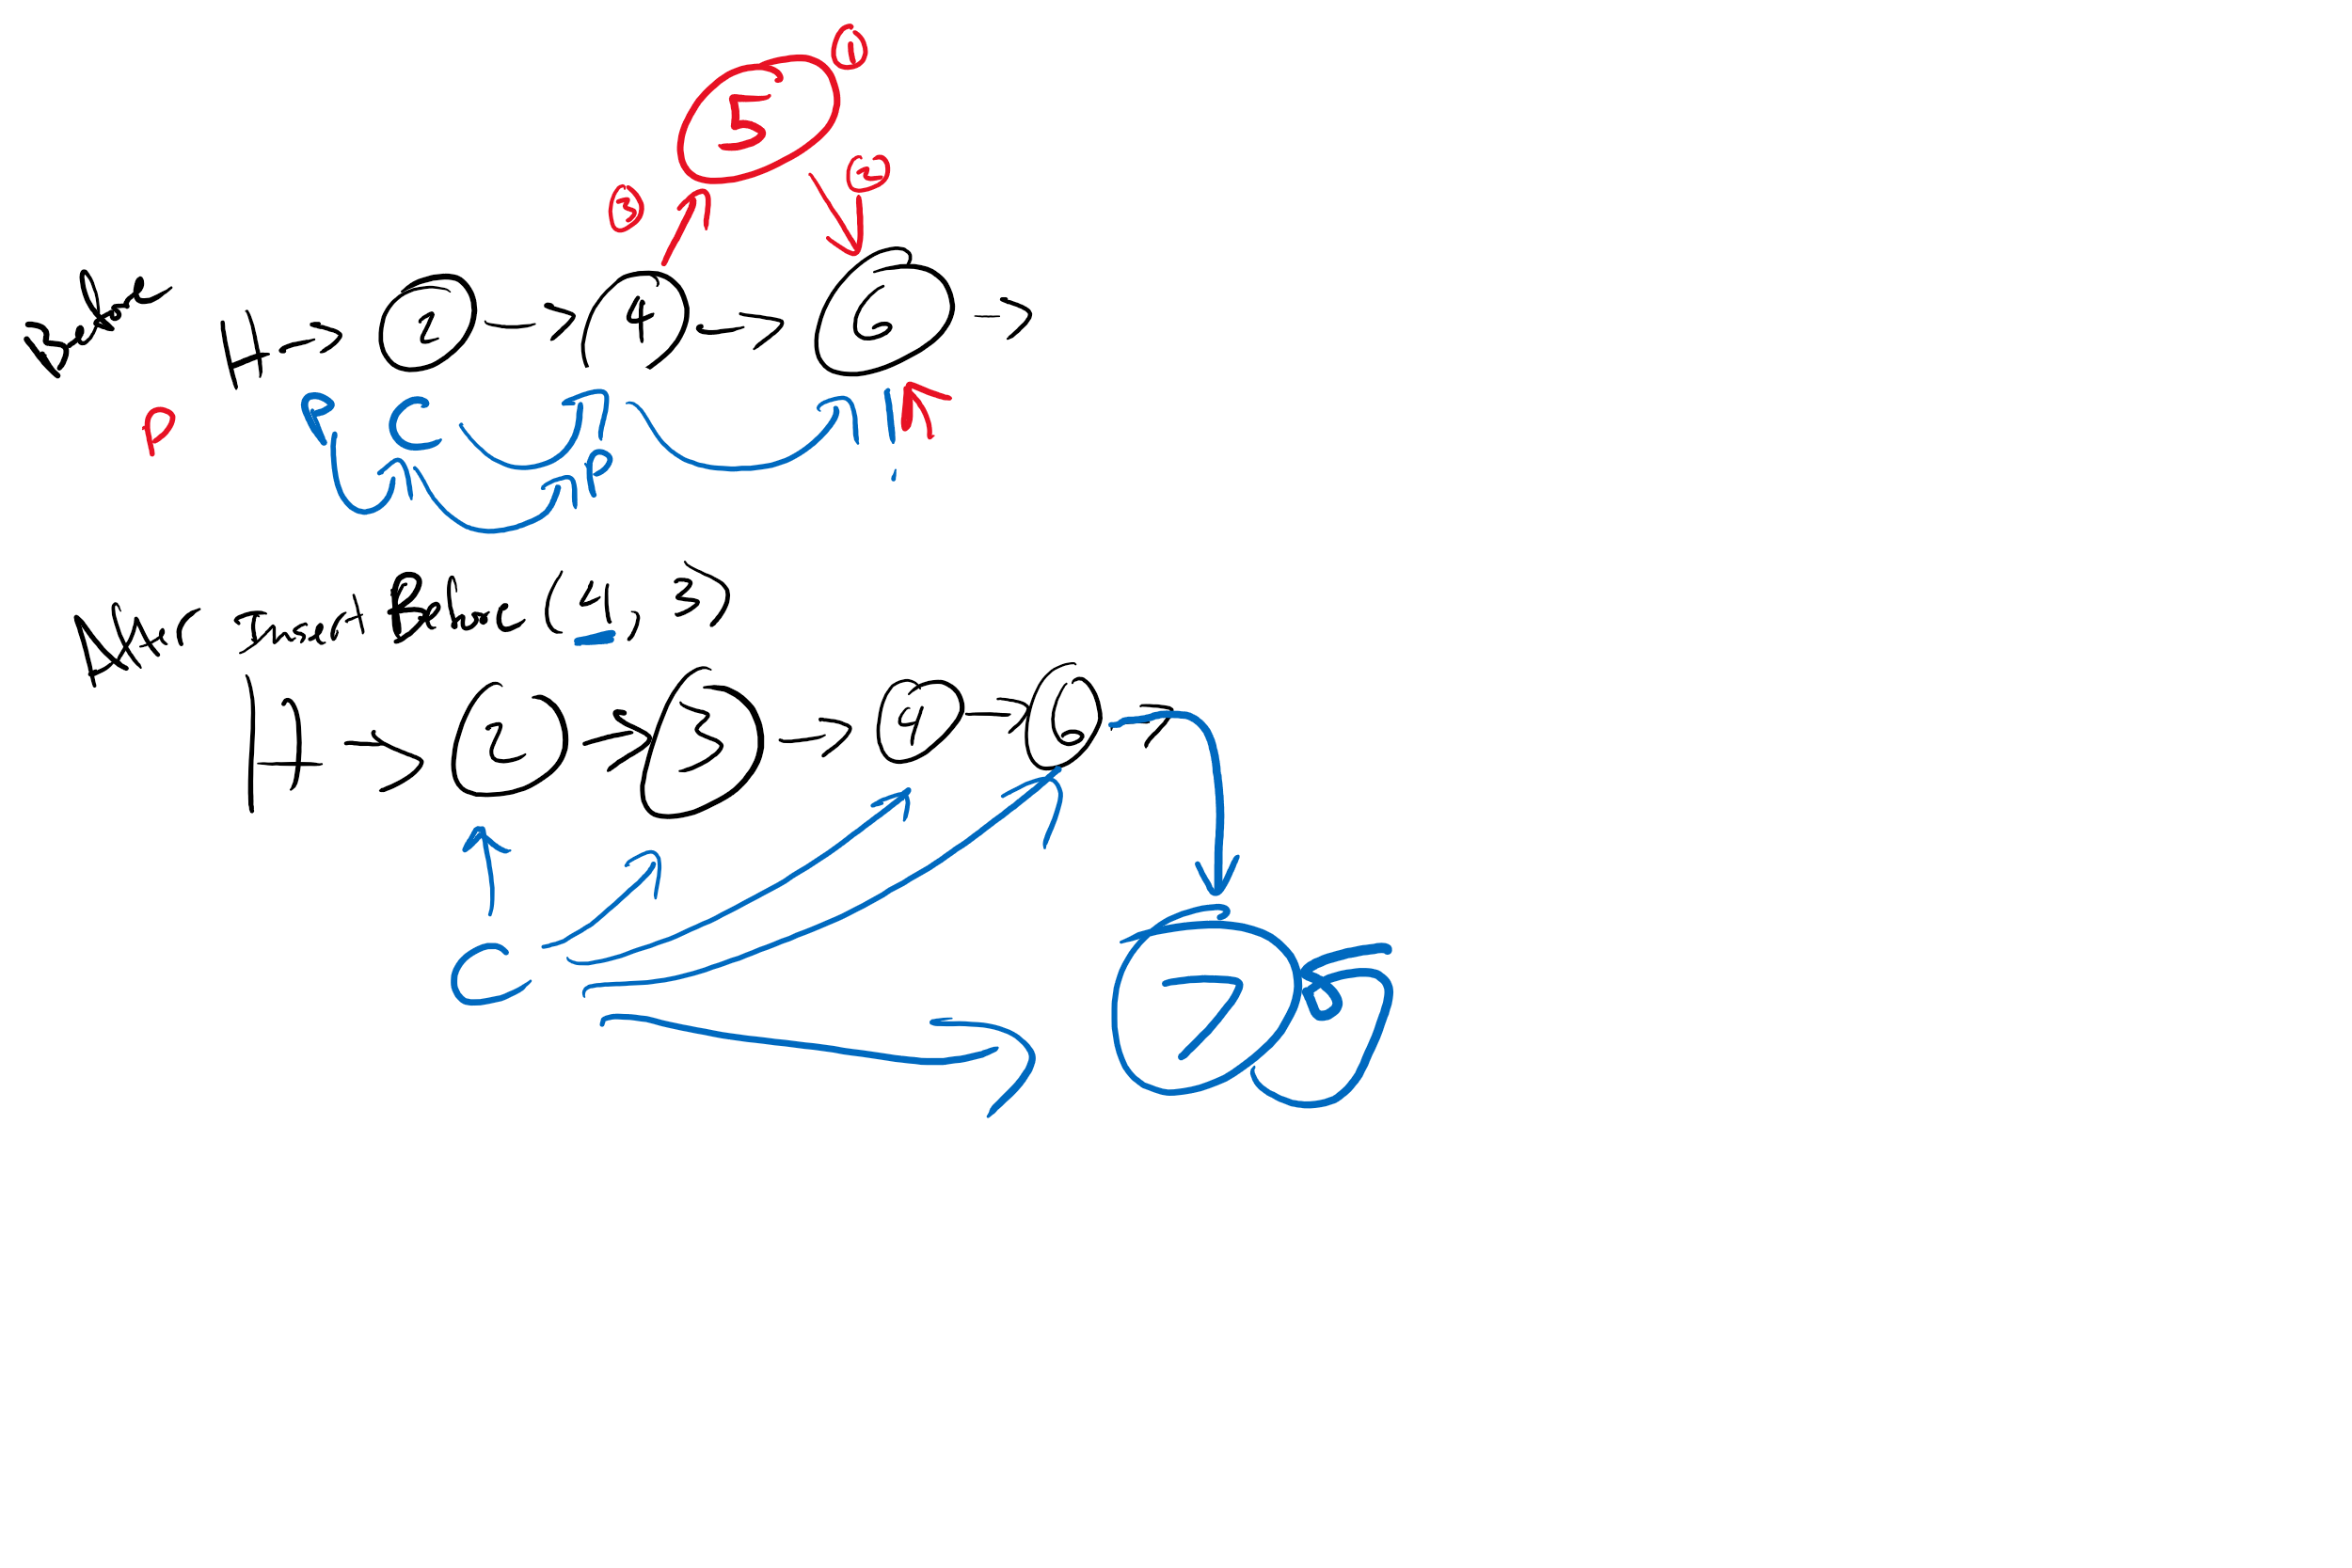 ①
5
②
③
Before H → 2 → 4 → 6 →
P P C
P
After insert Before (4, 3)
H → 2 → 3 → 4 → 6 →
C
7